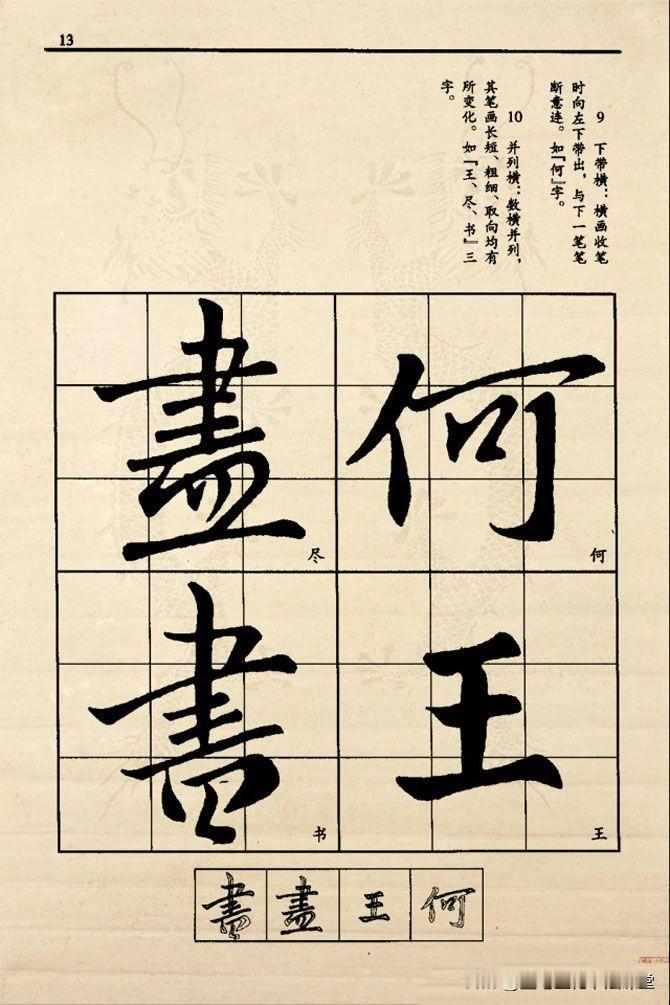 13
9 下带横：横画收笔
时向左下带出，与下一笔笔
断意连。如『何』字。
10 并列横：数横并列，
其笔画长短、粗细、取向均有
所变化。如『王、尽、书』三
字。
何
何
王
王
盡
尽
書
书
何
王
盡
書